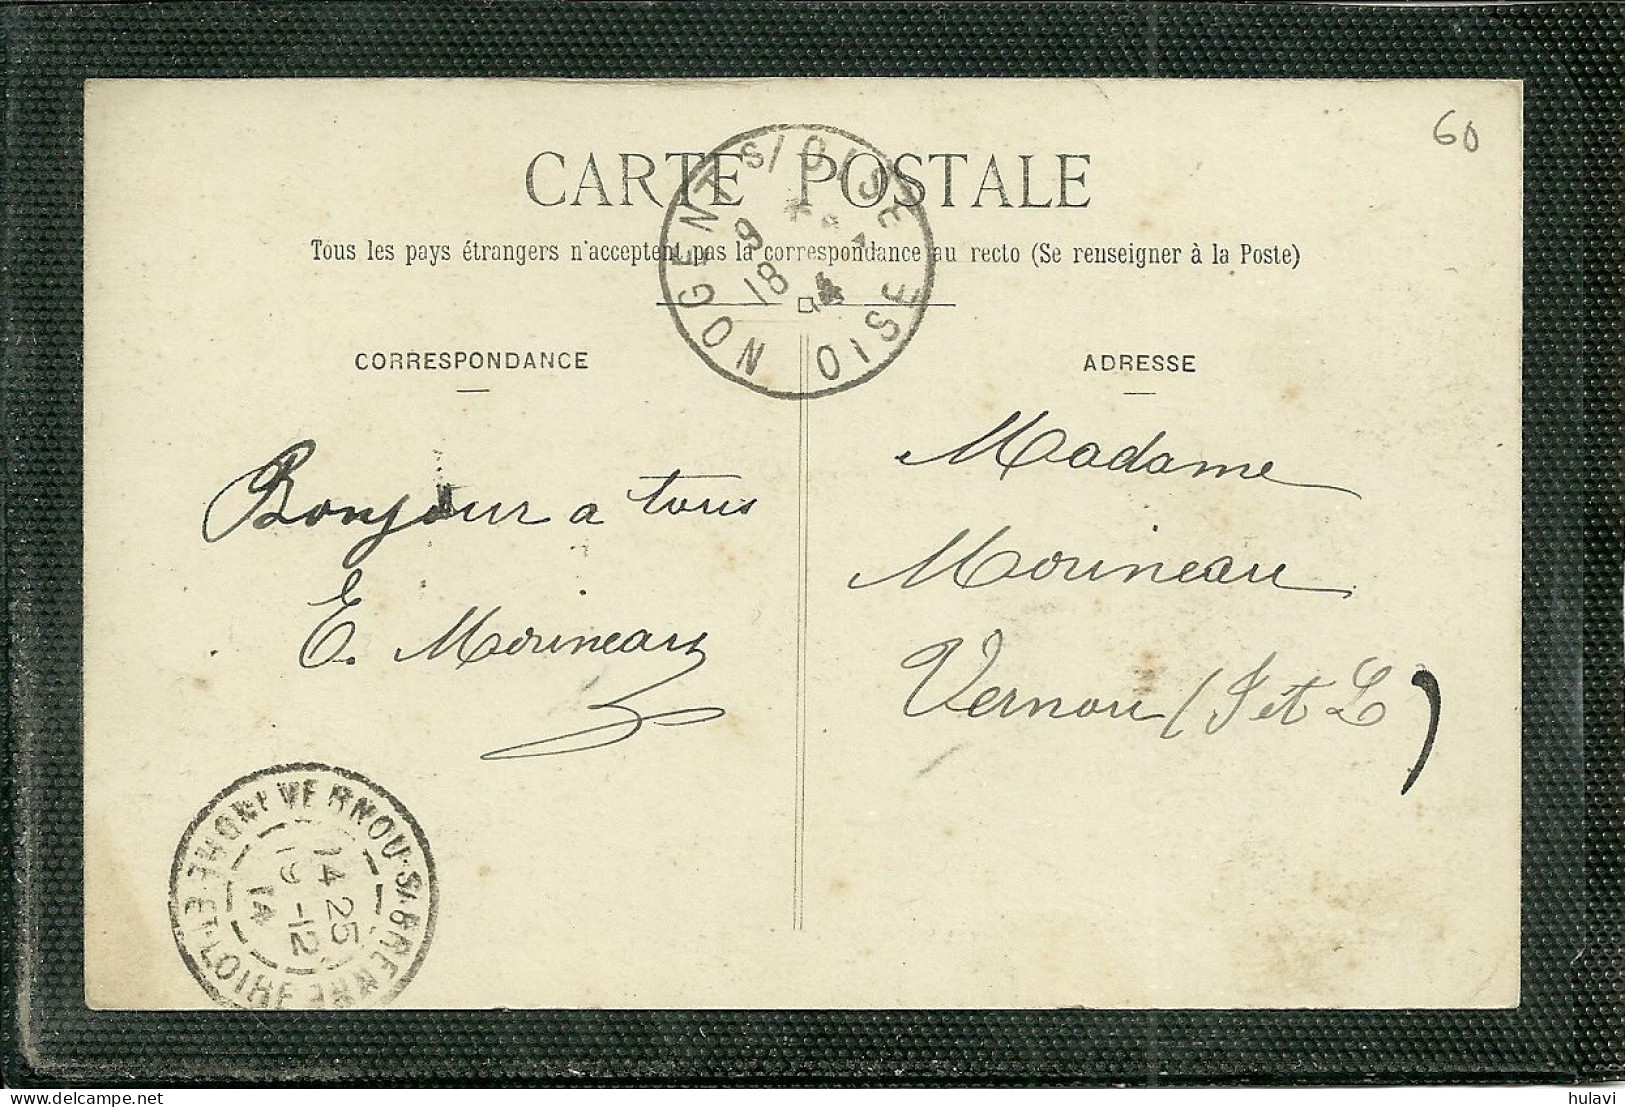 60
CARTE POSTALE
Tous les pays étrangers n'acceptent pas la correspondance au recto (Se renseigner à la Poste)
NOGENT S/OISE OISE
9
18
4
CORRESPONDANCE
ADRESSE
Bonjour a tous
E. Morineau
Madame
Morineau
Vernou (I et L)
VERNOU-S/-BRENNE
14 25
19 -12
14
ET-LOIRE
hulavi